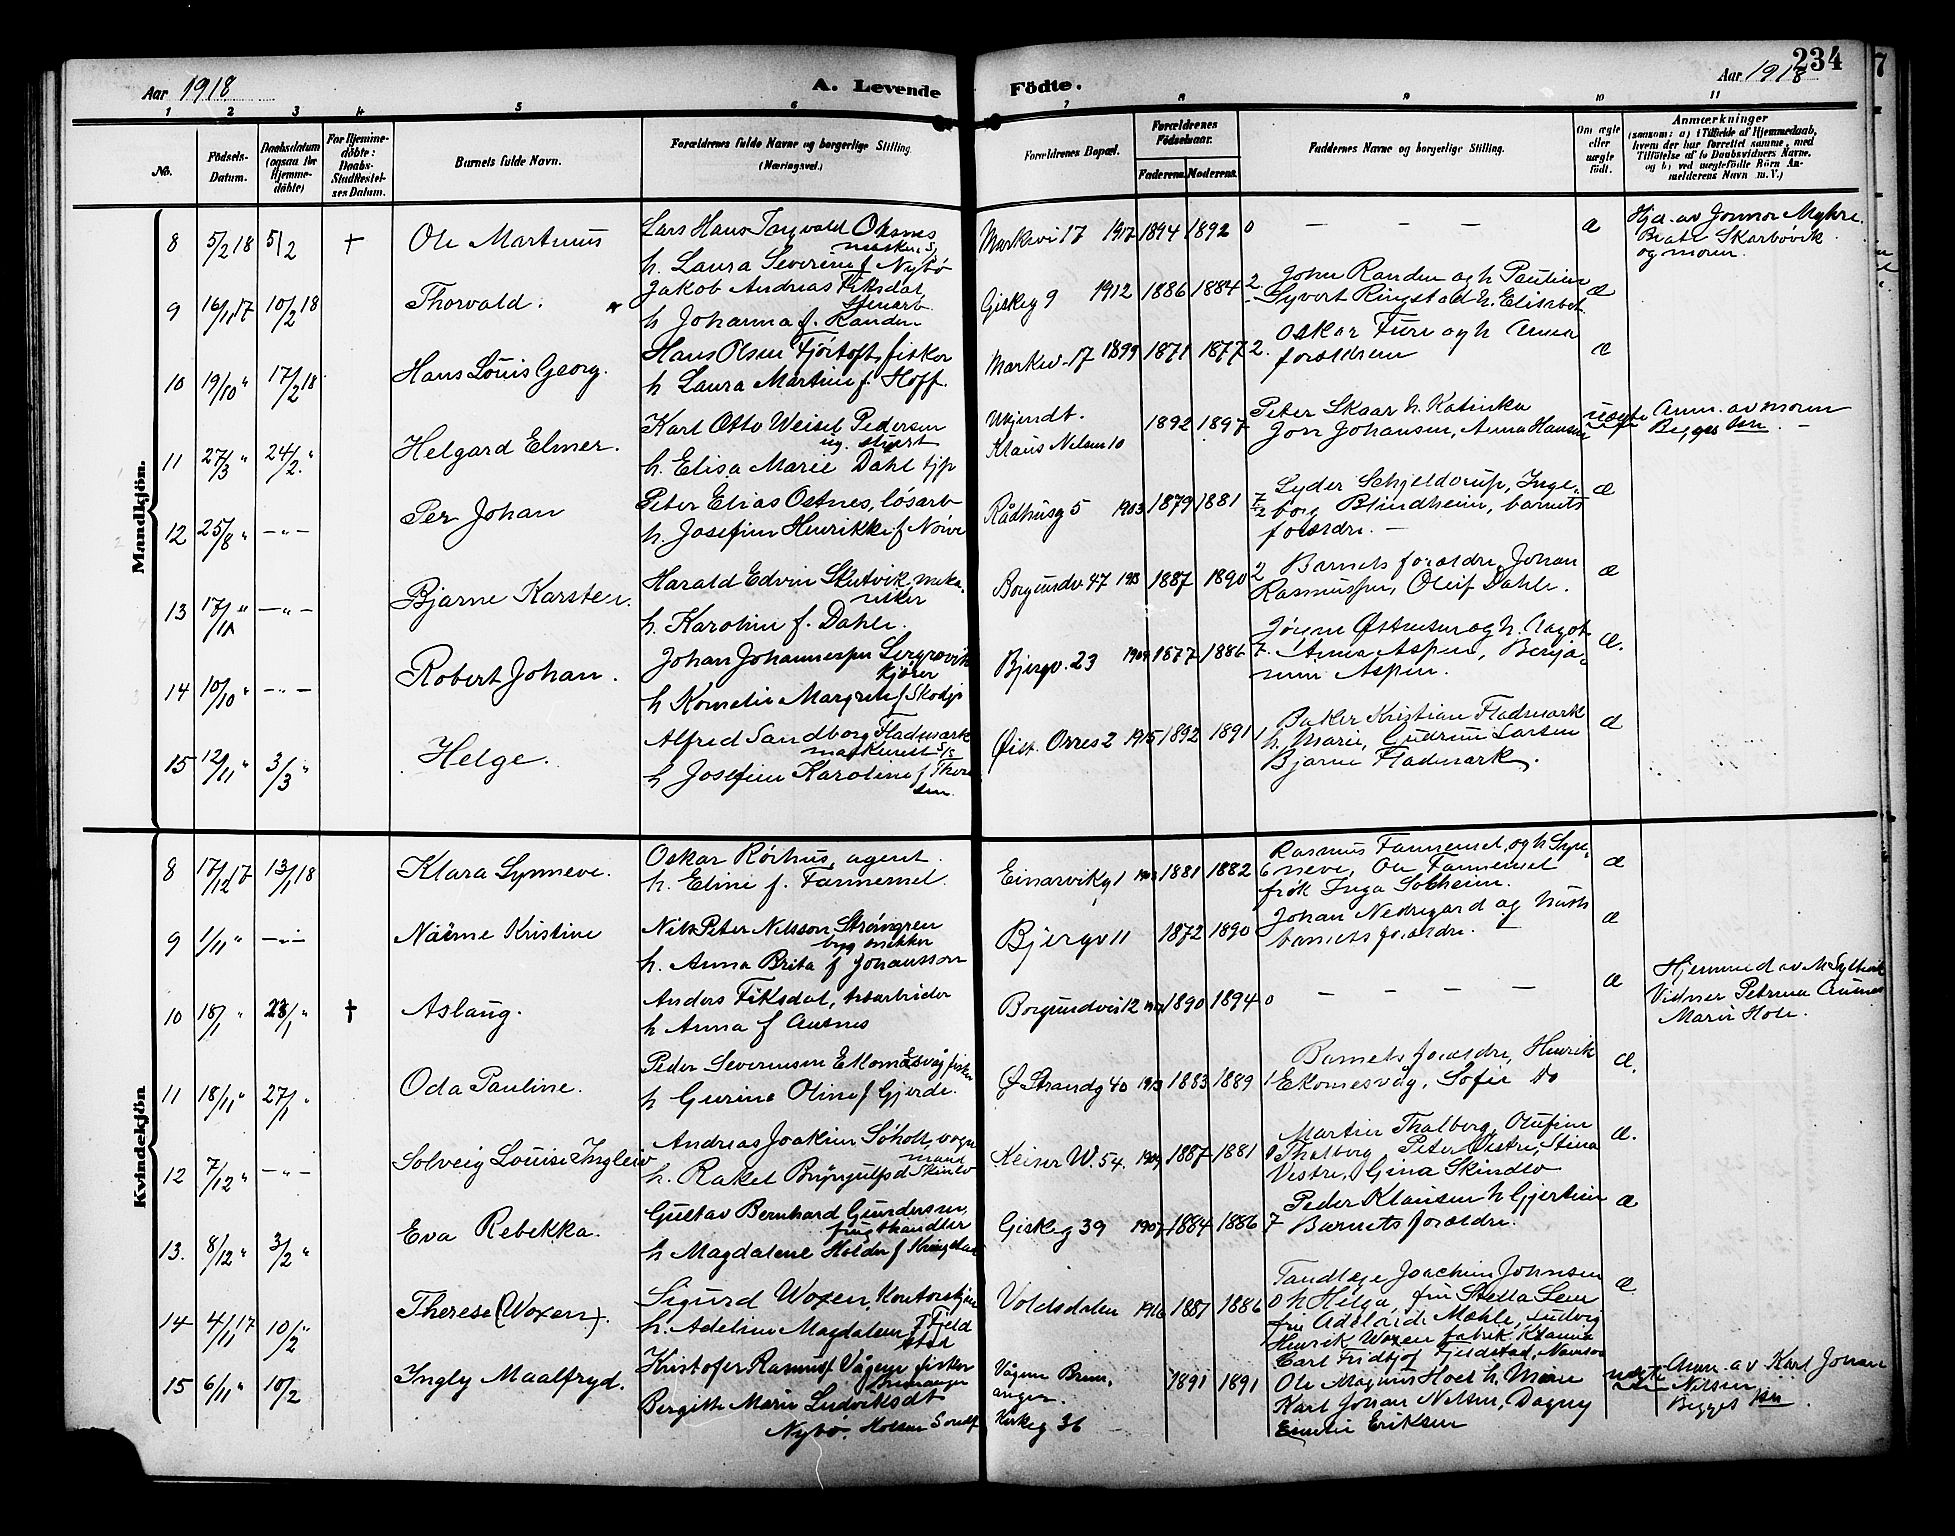 234
Aar 1918
A. Levende
Födte.
Aar 1918
1 2 3 4 5 6 7 8 9 10 11
No.
Födsels-
Datum.
Daabsdatum
(ogsaa for
Hjemme-
döbte)
For Hjemme-
döbte:
Daabs-
Stadfæstel-
ses Datum.
Barnets fulde Navn.
Forældrenes fulde Navne og borgerlige Stilling.
(Næringsvei.)
Forældrenes Bopæl.
Forældrenes
Födselsaar.
Faderens. Moderens.
Faddernes Navne og borgerlige Stilling.
Om ægte
eller
uægte
födt.
Anmærkninger
(saasom: a) i Tilfælde af Hjemmedaab,
hvem der har forrettet samme, med
Tilföielse af to Daabsvidners Navne,
og b) ved uægtefödte Börn An-
melderens Navn m. V.)
Mandkjön.
8 5/2 18 5/2 † Ole Martinus
Lars Hans Ingvald Oksnes
maskinist
h. Laura Severine f Nybø
Markvei 17 1917 1894 1892 0 — — — æ
Hjd. av Jonmor Myhre
Beate Skarbøvik
og moren.
9 16/11 17 10/2 18 Thorvald.
Jakob Andreas Fiksdal
stenarb
h Johanna f. Randen
Giskeg 9 1912 1886 1884 2
John Randen og h Pauline
Syvert Ringstad h. Elisabet
æ
10 19/10 " 17/2 18 Hans Louis Georg.
Hans Olsen Fjørtoft, fisker
h Laura Martine f. Hoff.
Markv. 17 1899 1871 1877 2.
Oskar Fure og h Anna
forældrene
æ
11 27/3 " 24/2 " Helgard Elmer.
Karl Otto Weisel Pedersen
ug. stuert
h. Elisa Marie Dahl tjp
Ukjendt.
Klaus Nilsen 10
1892 1897
Peter Skaar h. Katinka
Jon Johansen, Anna Hansen
uegte
Anm. av moren
Begges 1ste
12 25/8 " — " — Per Johan
Peter Elias Ostnes, løsarb
h. Josefine Henrikke f Nørve
Rådhusg 5 1903 1879 1881 7/2
Lyder Schjelderup, Inge-
borg Blindheim, barnets
forældre. —
æ
13 17/11 " — " — Bjarne Karsten.
Harald Edvin Slutvik, meka-
niker
h. Karoline f. Dahle.
Borgundv 47 1887 1890 2
Barnets forældre, Johan
Rasmussen, Oleif Dahle.
æ
14 10/10 " — " — Robert Johan.
Johan Johannessen
kjører
h Kornelie Margrete f Skodje
Bjergv. 23 1909 1877 1886 7
Anna Aspen, Benja-
min Aspen.
æ.
15 12/11 " 3/3 " Helge.
Alfred Sandborg Flademark
maskinist
h Josefine Karoline f Thore
sen.
Øist. Orres 2 1915 1892 1891 1
Baker Kristian Flademark
h, Marie, Gudrun Larsen
Bjarne Flademark.
æ
Kvindekjön
8 17/12 17 13/1 18 Klara Synneve.
Oskar Rørhus, agent.
h. Eline f. Fannemel.
Einarvikg 1 1881 1882 6
Rasmus Fannemel, og h Syn-
neve, Ole Fannemel
frøk Inga Solheim.
æ
9 1/11 " — " — Naime Kristine
Nils Peter Nilsson Strömgren
byg snikker
h. Anna Brita f Johansson
Bjergv 11 1872 1890
Johan Nedregard og hustr
barnets forældre.
æ
10 18/1 " 23/1 " † Aslaug.
Anders Fiksdal,
h Anna f Ausnes
Borgundvei 12 1890 1894 0 — — — — æ
Hjemmed av
Vidner Petrina Ausnes
Marie Hole.
11 18/11 " 27/1 " Oda Pauline.
Peder Severinsen Ekornesvåg fisker
h Gurine Oline f Gjerde.
Ø Strandg 40 1913 1883 1889 1
Barnets forældre, Henrik
Ekornesvåg, Sofie Do
æ.
12 7/12 " — " — Solveig Louise Ingleiv
Andreas Joakim Søholt, vogn
mand
h. Rakel Brynjulfsd Skinlo
Keiser W. 54. 1909 1887 1881 0
Martin Thalberg, Olufine
Thalberg Peter Vestre, Stina
Vestre, Gina Skindlo
æ.
13. 8/12 " 3/2 " Eva Rebekka.
Gustav Bernhard Gundersen,
frugthandler
h Magdalene Holder f Kringstad
Giskeg 39 1907 1884 1886 7
Peder Klausen h Gjertine
Barnets forældre.
æ
14 4/11 17 10/2 " Therese (Woxen).
Sigurd Woxen, Kontorchef
h. Adeline Magdalene f Fjeld
stad
Voldsdalen 1916 1887 1886 0
Tandlæge Joachim Johnsen
h Helga, fru Stella Sem
fru Adelaide Mæhle, Ludvig
Henrik Woxen fabrik
Carl Fridtjof Fjeldstad, Namsos
æ
15 6/11 " 10/2 Ingly Maalfryd.
Kristofer Rasmus Vågene fisker
Bremanger
Bergitte Marie Ludviksdt
Nybø.
Vågene Brem-
anger.
Kirkeg 36
1891 1891
Ole Magnus Hoel h Marie
Karl Johan Nilsen, Dagny
Emelie Eriksen
uegte
Anm. av Karl Johan
Nilsen
Begges 1ste